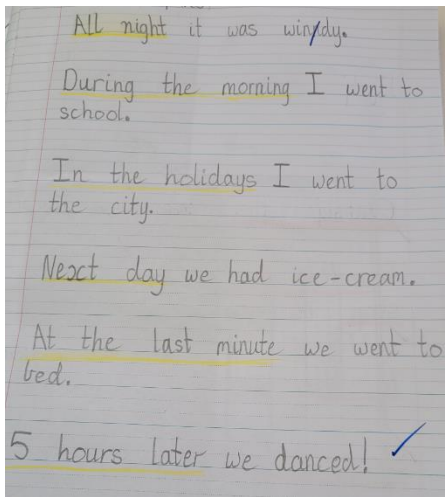 All night it was windy.
During the morning I went to
school.
In the holidays I went to
the city.
Next day we had ice-cream.
At the last minute we went to
bed.
5 hours later we danced!